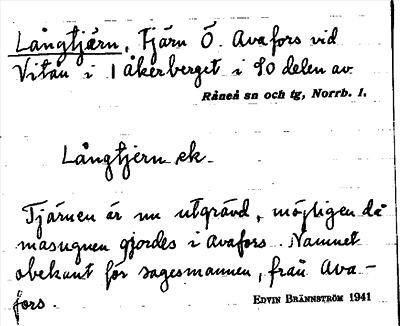 Långtjärn, Tjärn Ö. Avafors vid
Vitån i 1 åkerberget i SO delen av
Råneå sn och tg, Norrb. l.
Långtjern ek.
Tjärnen är nu utgrävd, möjligen då
masugnen gjordes i Avafors. Namnet
obekant för sagesmannen, från Ava-
fors.
EDVIN BRÄNNSTRÖM 1941